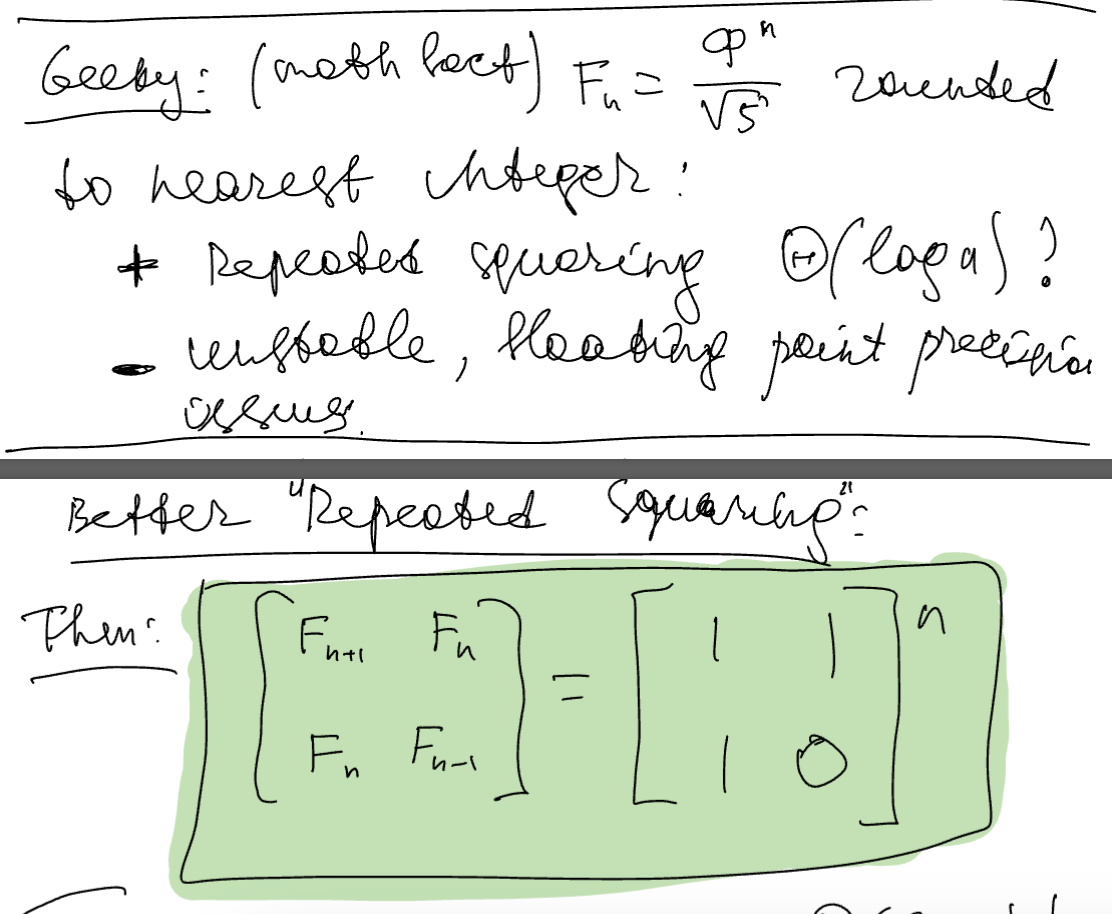 Geeky: (math fact) Fₙ = φⁿ/√5 rounded
to nearest integer:
+ Repeated squaring Θ(log n)!
- unstable, floating point precision
issues.
Better "Repeated Squaring":
Then: [Fₙ₊₁ Fₙ; Fₙ Fₙ₋₁] = [1 1; 1 0]ⁿ